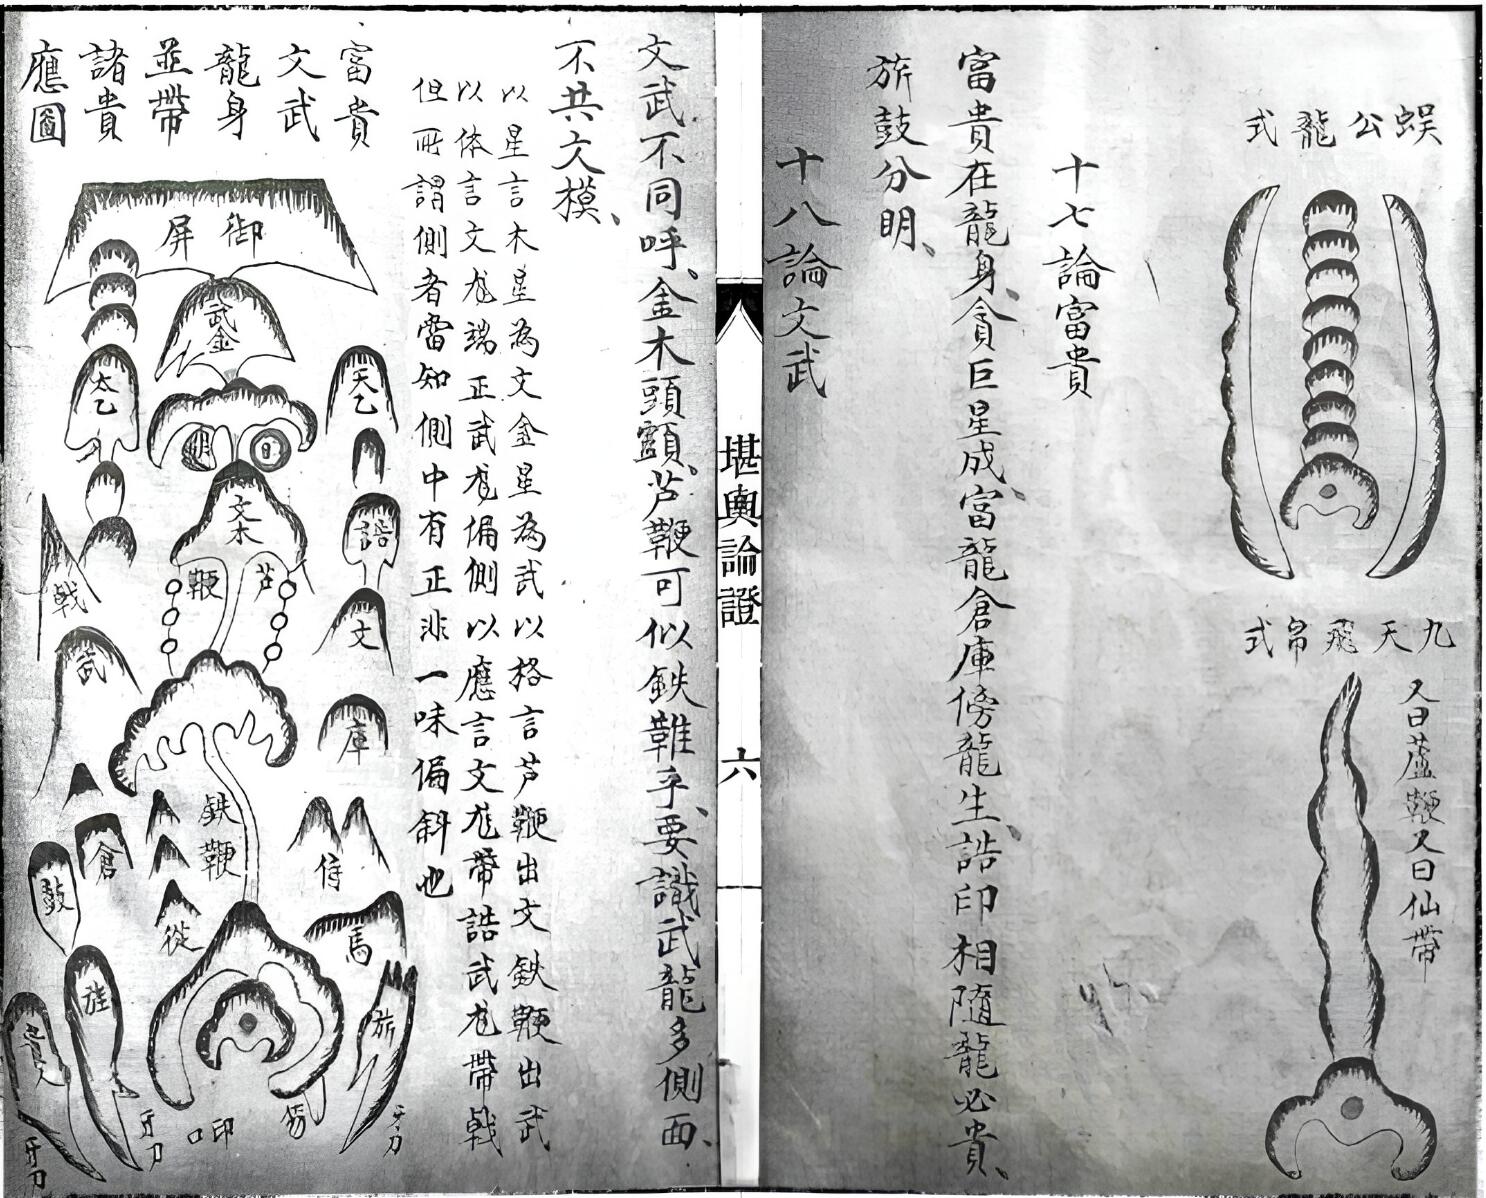 蜈公龍式
九天飛帛式
又曰蘆鞭又曰仙帶
十七論富貴
富貴在龍身、貪巨星成、富龍倉庫傍龍生、誥印相隨龍必貴、
旂鼓分明、
十八論文武
堪輿論證
六
文武不同呼、金木頭顱、芦鞭可似鉄鞋乎、要識武龍多側面、
不共文模、
以星言木星為文金星為武以格言芦鞭出文鉄鞭出武
以体言文尨端正武尨偏側以應言文尨帶誥武尨帶戟
但所謂側者當知側中有正非一味偏斜也
富貴
文武
龍身
並帶
諸貴
應圖
御屏
武金
太乙
天乙
文木
誥
芦鞭
戟
文
武
庫
鉄鞭
倉
侍
鼓
從
馬
旂
牙刀
印
笏
牙刀
牙刀